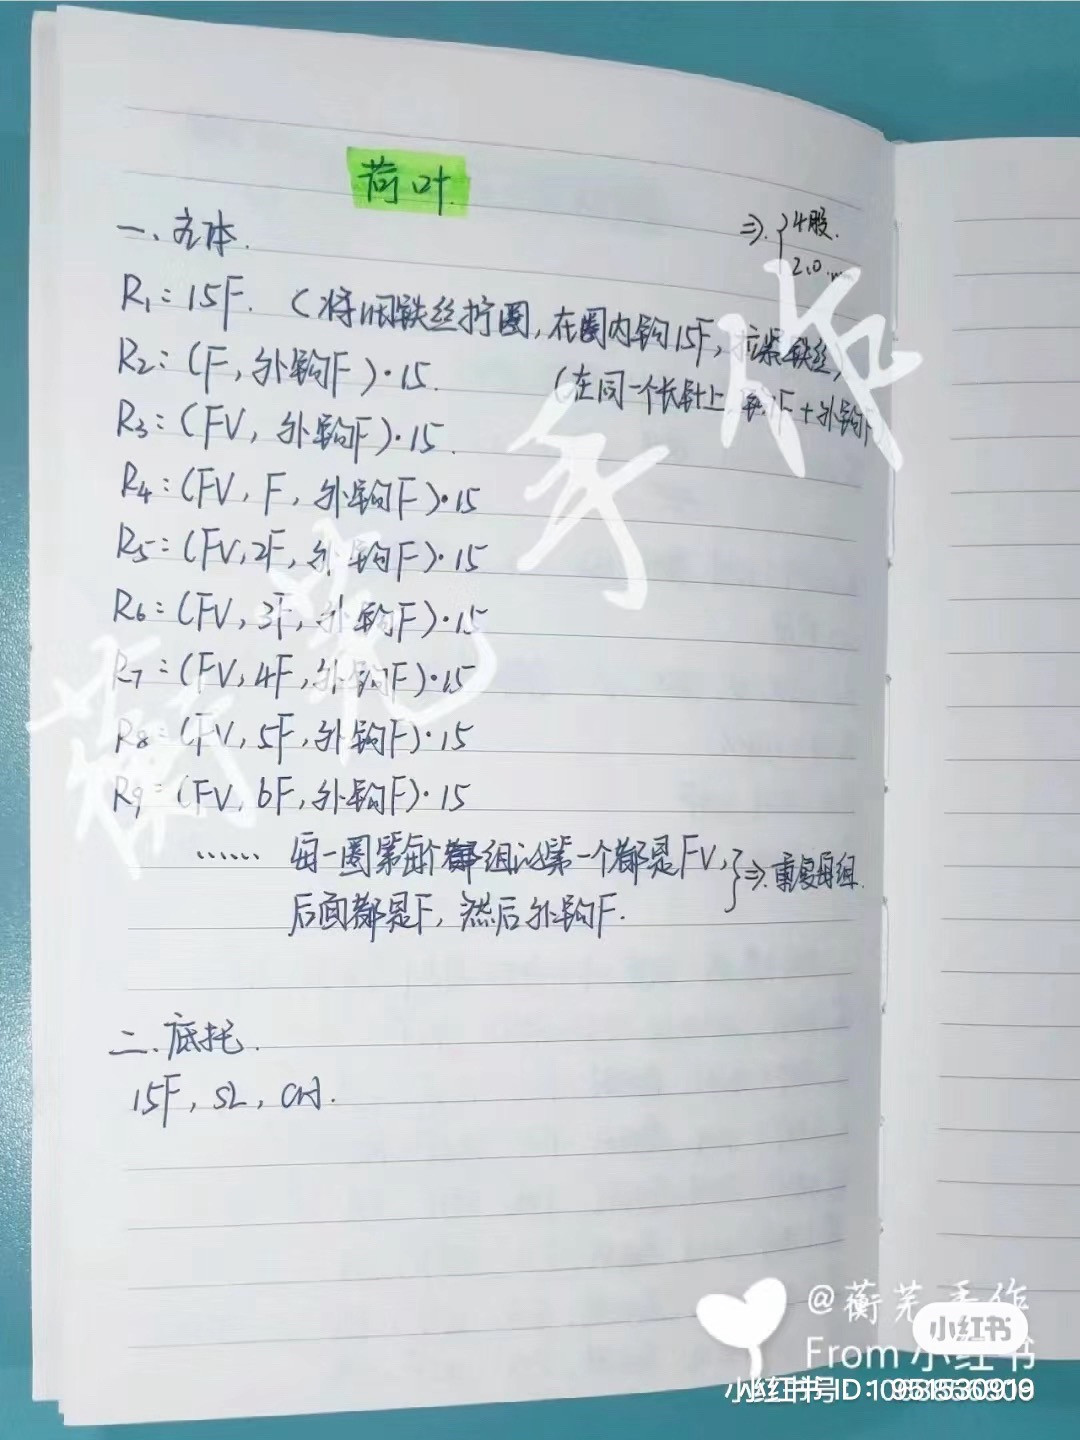 荷叶
一、主体.
⇒ {4股.
2.0mm
R1: 15F. (将用铁丝拧圈, 在圈内钩15F, 拉紧铁丝)
R2: (F, 外钩F)·15. (在同一个长针上, 钩F+外钩F
R3: (FV, 外钩F)·15.
R4: (FV, F, 外钩F)·15
R5: (FV, 2F, 外钩F)·15
R6: (FV, 3F, 外钩F)·15
R7: (FV, 4F, 外钩F)·15
R8: (FV, 5F, 外钩F)·15
R9: (FV, 6F, 外钩F)·15
…… 每一圈每组 第一个都是FV,
后面都是F, 然后外钩F. } ⇒ 重复每组.
二、底托.
15F, SL, CH.
蘅芜手作
@蘅芜手作
小红书
From 小红书
小红书号